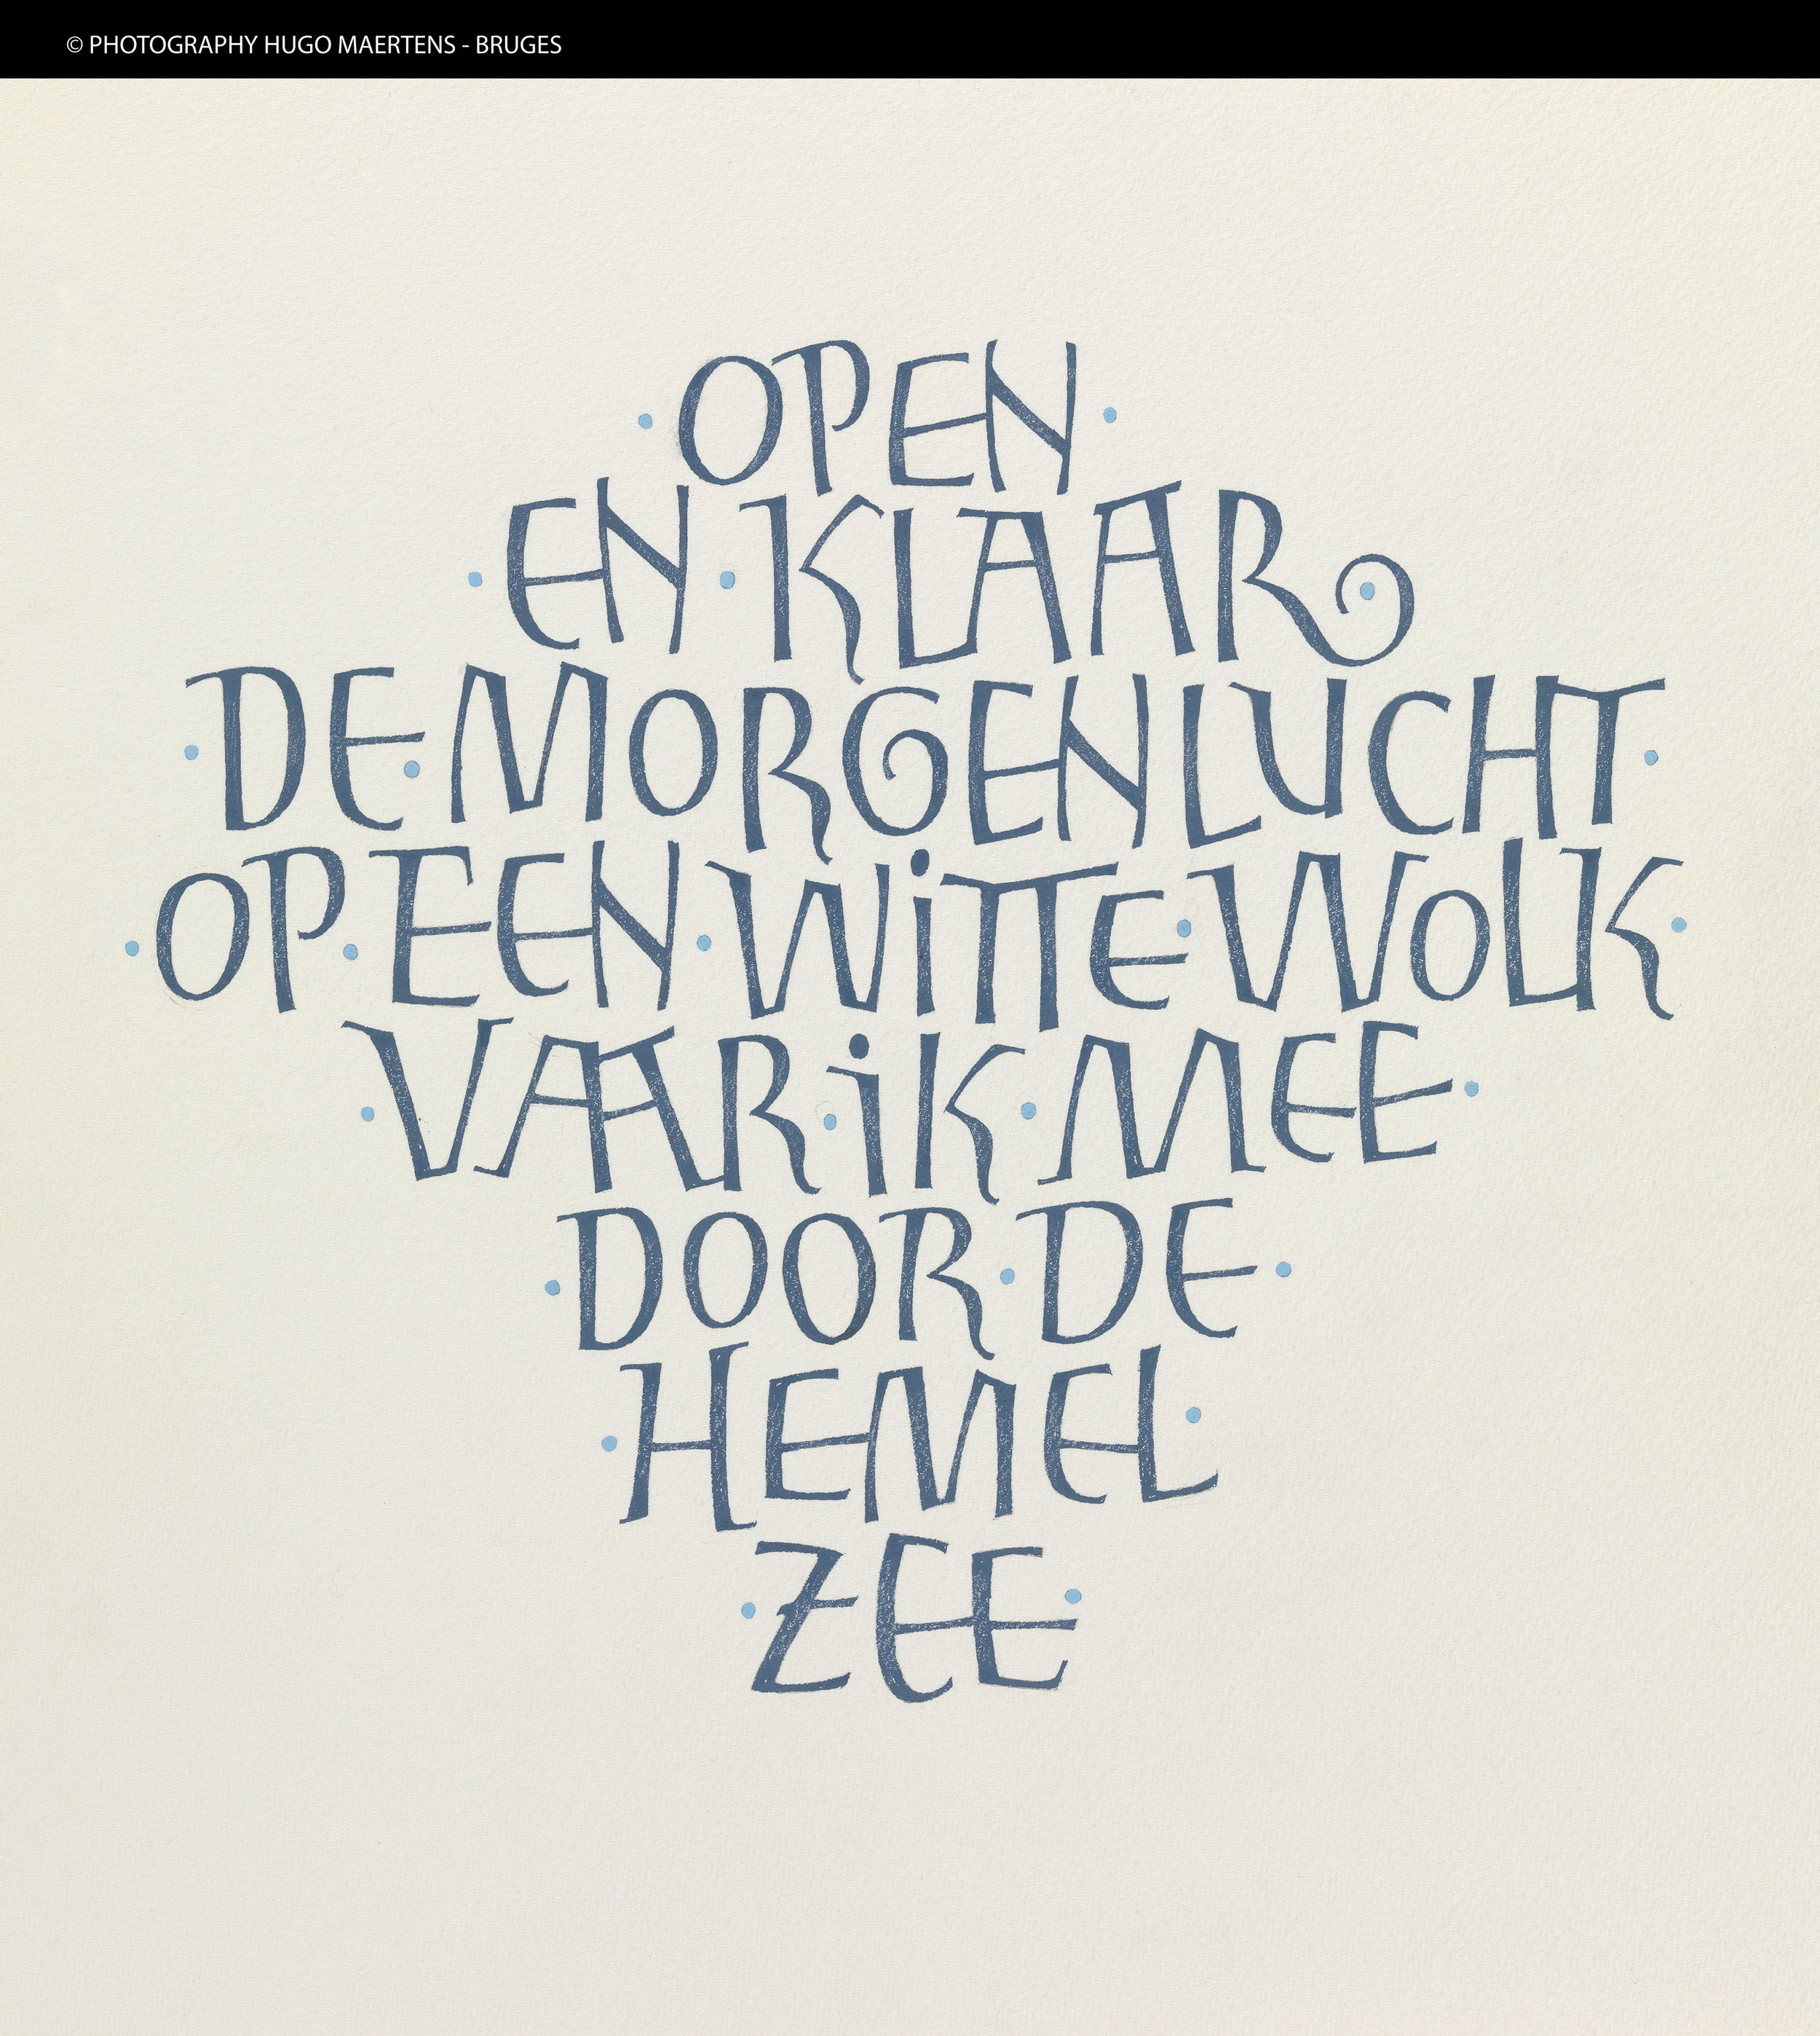 © PHOTOGRAPHY HUGO MAERTENS - BRUGES
· OPEN ·
· EN · KLAAR ·
· DE · MORGENLUCHT ·
· OP · EEN · WiTTE · WOLK ·
· VAAR · iK · MEE ·
· DOOR · DE ·
· HEMEL ·
· ZEE ·